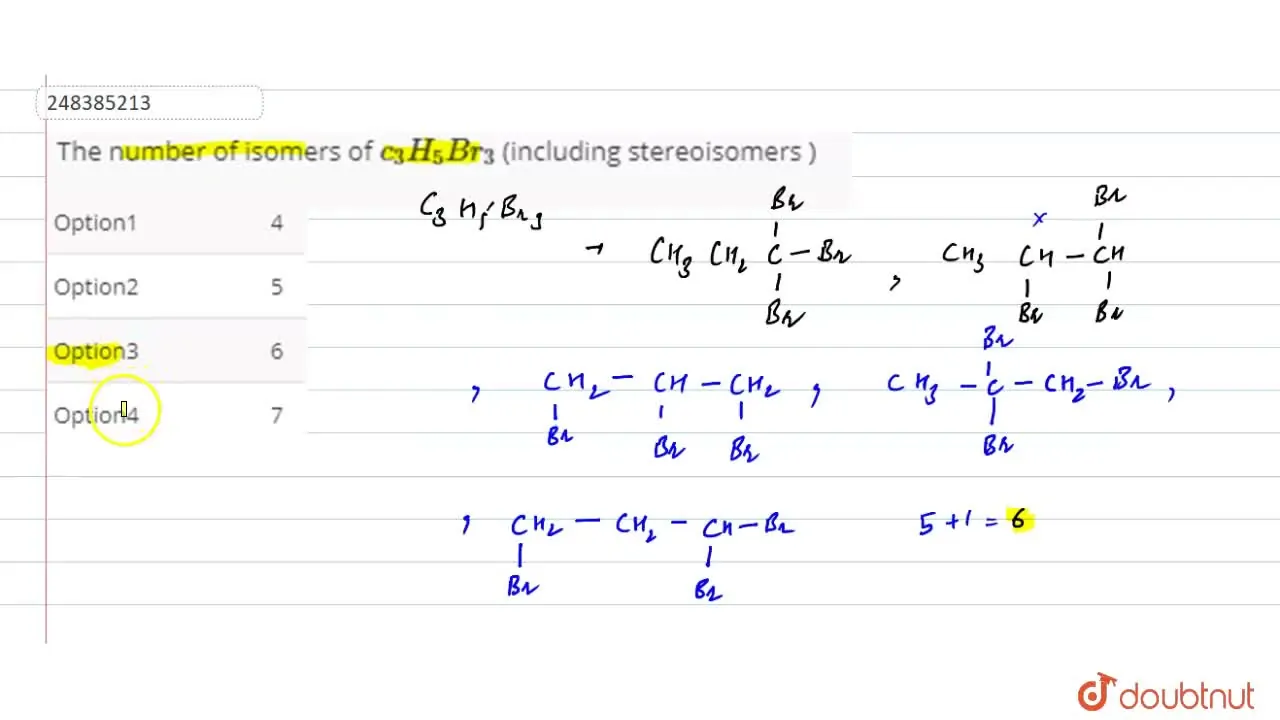 248385213
The number of isomers of c₃H₅Br₃ (including stereoisomers )
Option1 4
Option2 5
Option3 6
Option4 7
C₃ H₅ Br₃
Br Br
→ CH₃ CH₂ C – Br , CH₃ CH – CH
x
Br Br Br
Br
, CH₂ – CH – CH₂ , CH₃ – C – CH₂ – Br ,
Br Br Br Br
, CH₂ – CH₂ – CH – Br 5 + 1 = 6
Br Br
doubtnut